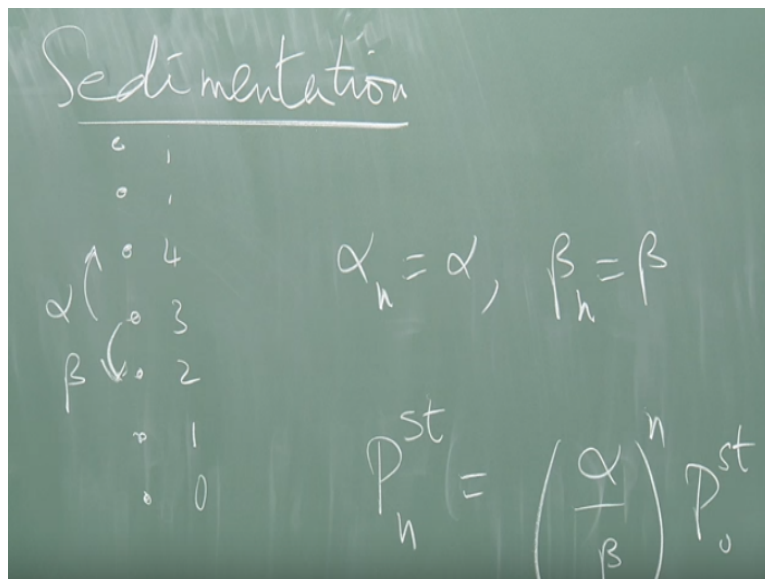 Sedimentation
4
α 3
β 2
1
0
αₙ = α, βₙ = β
Pₙˢᵗ = (α/β)ⁿ P₀ˢᵗ